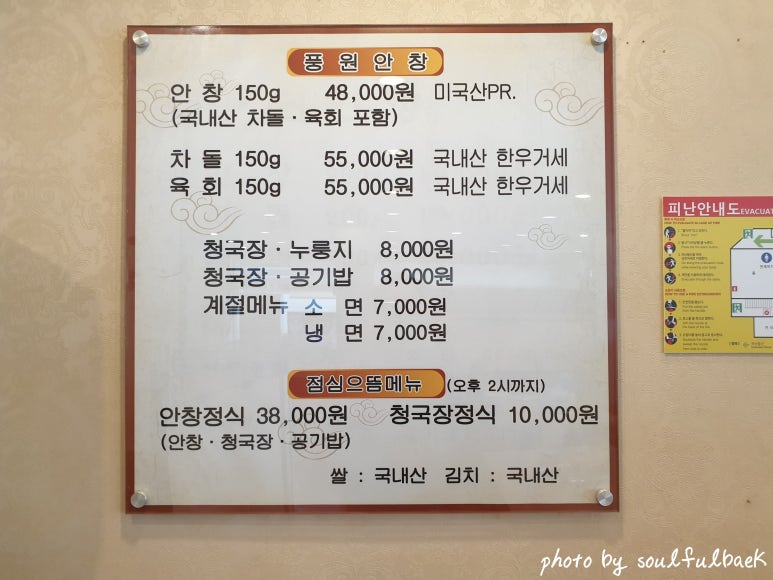 풍원안창
안 창 150g 48,000원 미국산PR.
(국내산 차돌·육회 포함)
차 돌 150g 55,000원 국내산 한우거세
육 회 150g 55,000원 국내산 한우거세
청국장·누룽지 8,000원
청국장·공기밥 8,000원
계절메뉴 소 면 7,000원
냉 면 7,000원
점심으뜸메뉴 (오후 2시까지)
안창정식 38,000원 청국장정식 10,000원
(안창·청국장·공기밥)
쌀 : 국내산 김치 : 국내산
피난안내도 EVACUAT
photo by soulfulbaek